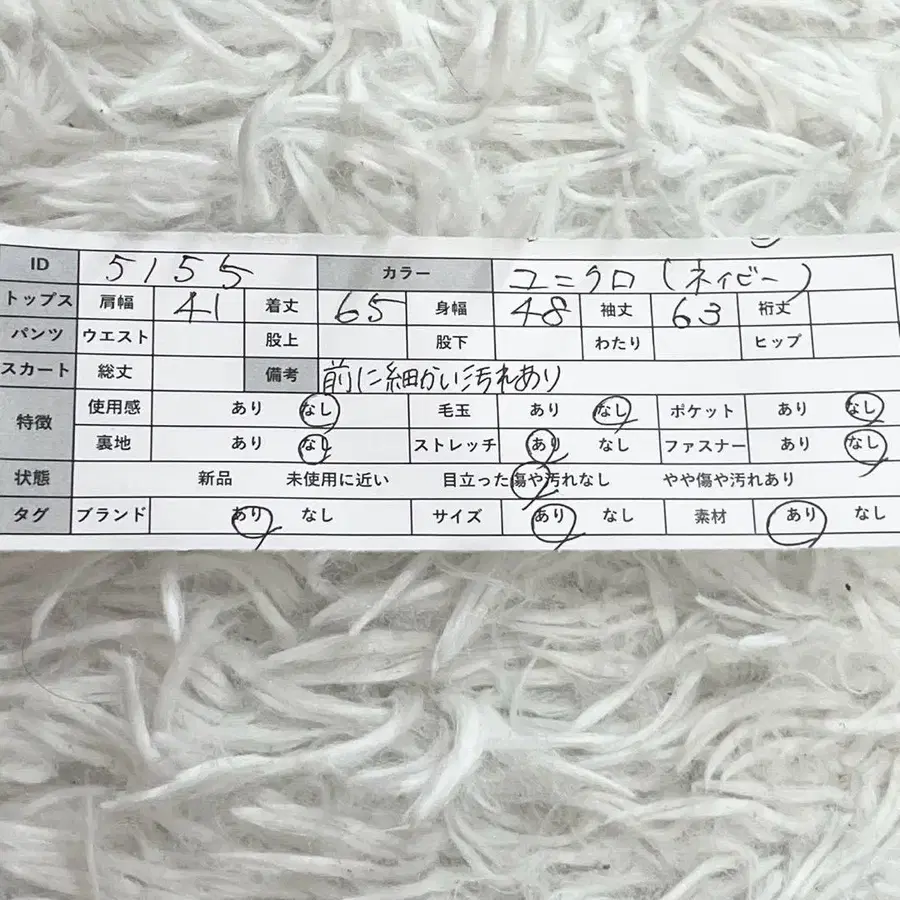 ID 5155 カラー ユニクロ(ネイビー)
トップス 肩幅 41 着丈 65 身幅 48 袖丈 63 裄丈
パンツ ウエスト 股上 股下 わたり ヒップ
スカート 総丈 備考 前に細かい汚れあり
特徴 使用感 あり なし 毛玉 あり なし ポケット あり なし
裏地 あり なし ストレッチ あり なし ファスナー あり なし
状態 新品 未使用に近い 目立った傷や汚れなし やや傷や汚れあり
タグ ブランド あり なし サイズ あり なし 素材 あり なし